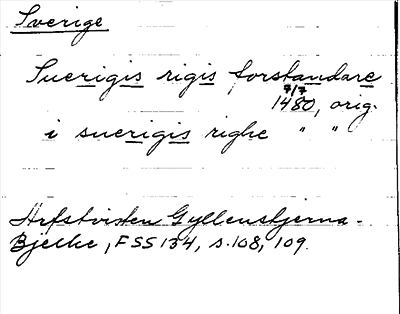 Sverige
Suerigis rigis forstandare
7/7
1480, orig.
i suerigis righe " "
Arfstvisten Gyllenstjerna-
Bjelke, FSS 134, s. 108, 109.